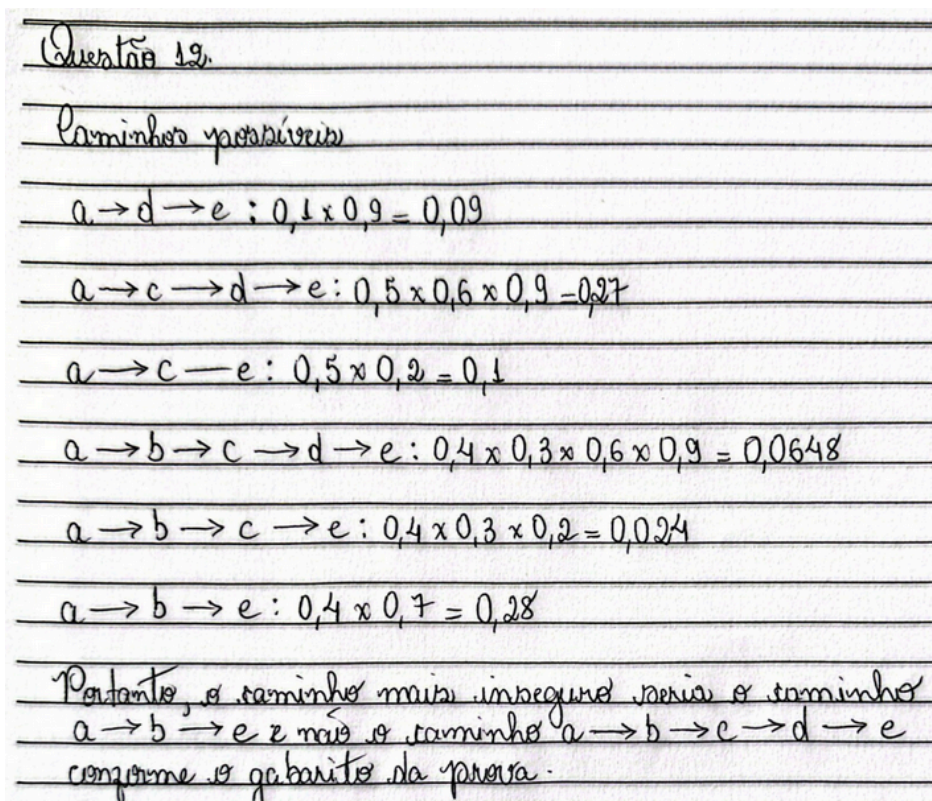 Questão 12.
Caminhos possíveis
a → d → e : 0,1 x 0,9 = 0,09
a → c → d → e : 0,5 x 0,6 x 0,9 = 0,27
a → c — e : 0,5 x 0,2 = 0,1
a → b → c → d → e : 0,4 x 0,3 x 0,6 x 0,9 = 0,0648
a → b → c → e : 0,4 x 0,3 x 0,2 = 0,024
a → b → e : 0,4 x 0,7 = 0,28
Portanto, o caminho mais inseguro seria o caminho
a → b → e e não o caminho a → b → c → d → e
conforme o gabarito da prova.